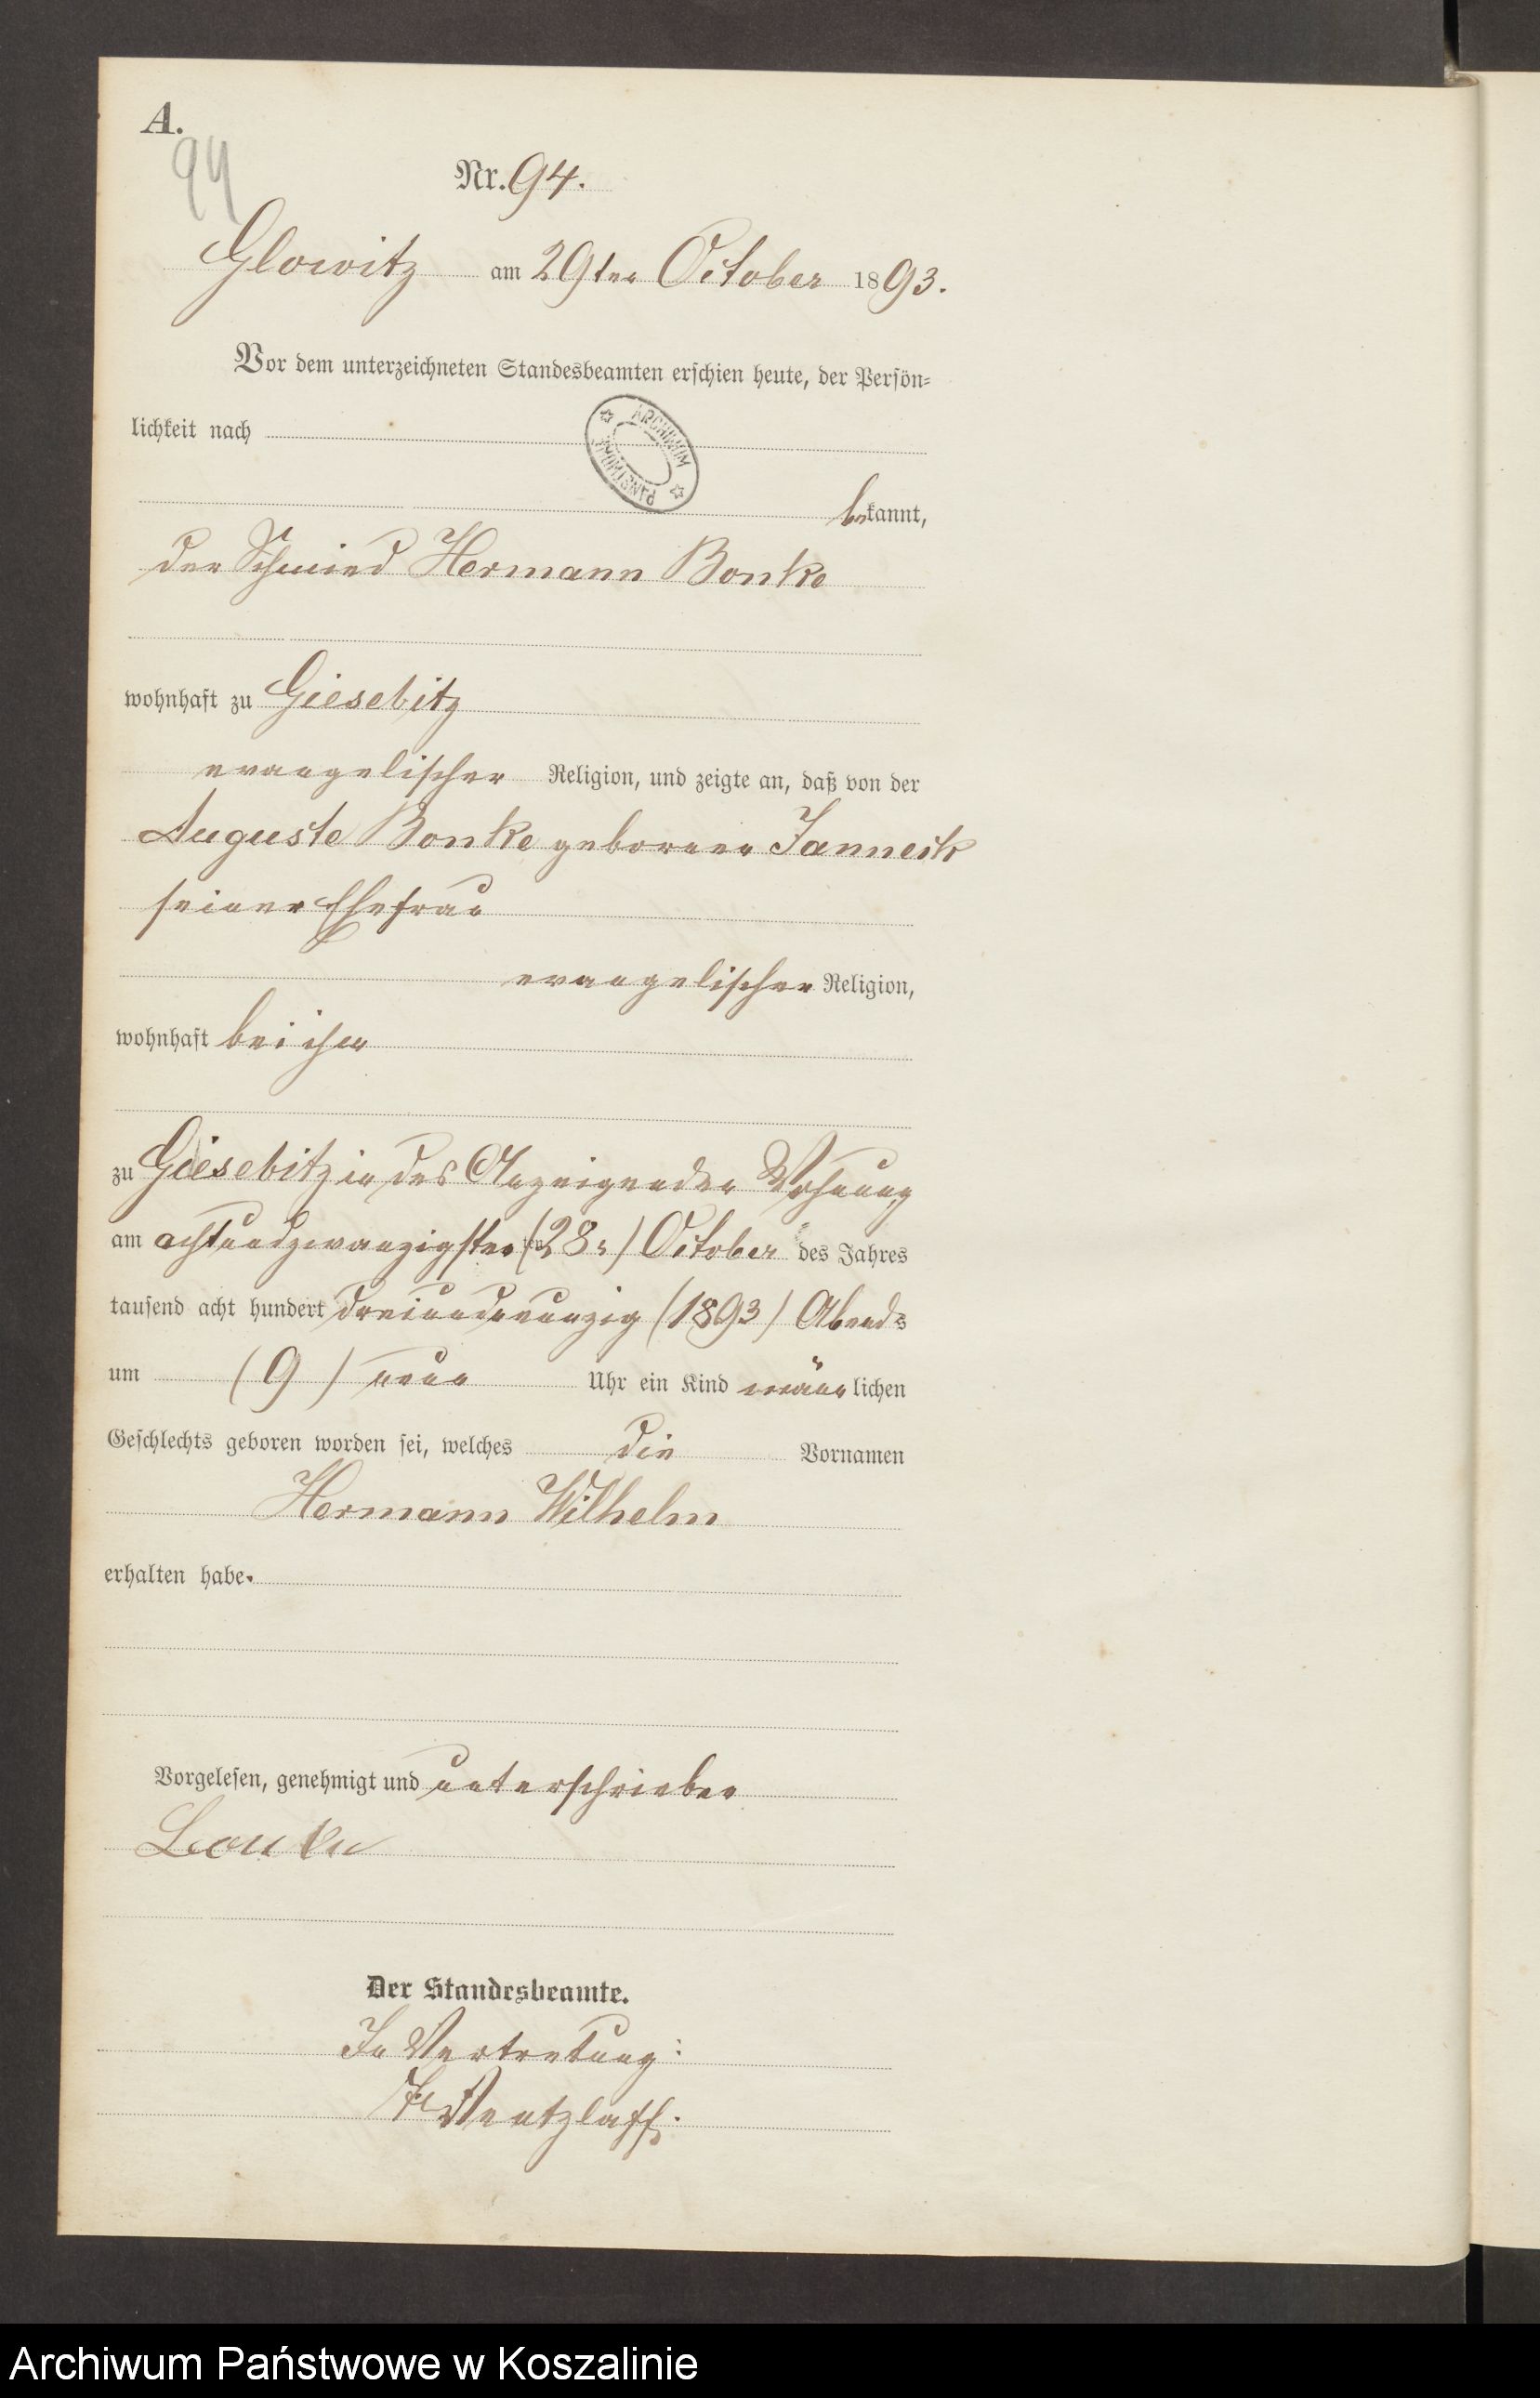 A.
94
Nr. 94.
Glowitz am 29ten October 1893.
Vor dem unterzeichneten Standesbeamten erschien heute, der Persön-
lichkeit nach
ARCHIWUM PAŃSTWOWE
bekannt,
der Schmied Hermann Bonke
wohnhaft zu Giesebitz
evangelischer Religion, und zeigte an, daß von der
Auguste Bonke geborenen Janneck
seiner Ehefrau
evangelischer Religion,
wohnhaft bei ihm
zu Giesebitz in des Anzeigenden Wohnung
am achtundzwanzigsten (28ten) October des Jahres
tausend acht hundert dreiundneunzig (1893) Abends
um (9) neun Uhr ein Kind männlichen
Geschlechts geboren worden sei, welches die Vornamen
Hermann Wilhelm
erhalten habe.
Vorgelesen, genehmigt und unterschrieben
Bonke
Der Standesbeamte.
In Vertretung:
Wentzlaff.
Archiwum Państwowe w Koszalinie